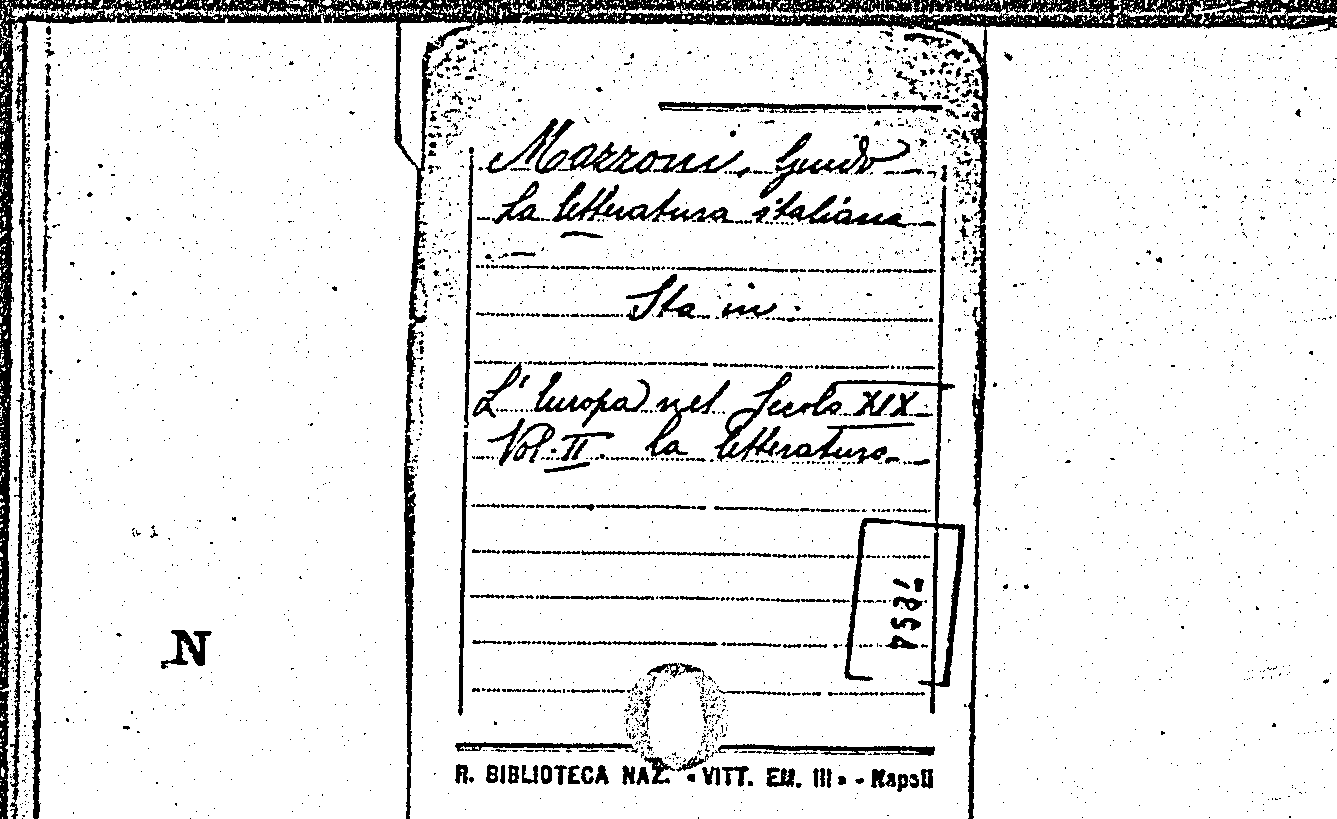 Mazzoni, Guido
La letteratura italiana
Sta in.
L'Europa nel Secolo XIX
Vol. II. La letteratura
N
R. BIBLIOTECA NAZ. «VITT. EM. III» - Napoli